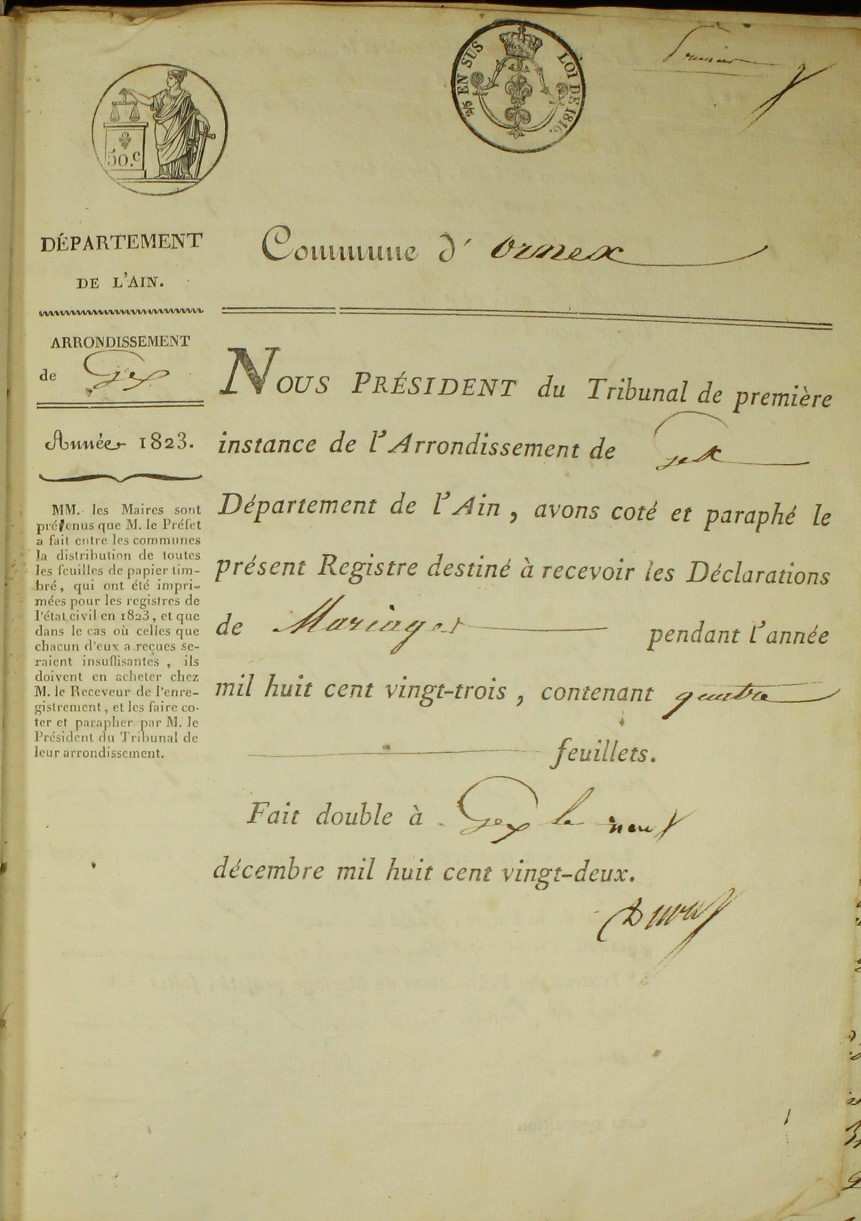 50.c
EN SUS
LOI DE 1816.
Premier
DÉPARTEMENT
DE L'AIN.
ARRONDISSEMENT
de Gex
Année 1823.
MM. les Maires sont
prévenus que M. le Préfet
a fait entre les communes
la distribution de toutes
les feuilles de papier tim-
bré, qui ont été impri-
mées pour les registres de
l'état civil en 1823, et que
dans le cas où celles que
chacun d'eux a reçues se-
raient insuffisantes, ils
doivent en acheter chez
M. le Receveur de l'enre-
gistrement, et les faire co-
ter et parapher par M. le
Président du Tribunal de
leur arrondissement.
Commune d' ornex
NOUS PRÉSIDENT du Tribunal de première
instance de l'Arrondissement de Gex
Département de l'Ain, avons coté et paraphé le
présent Registre destiné à recevoir les Déclarations
de Mariages pendant l'année
mil huit cent vingt-trois, contenant quatre
feuillets.
Fait double à Gex le neuf
décembre mil huit cent vingt-deux.